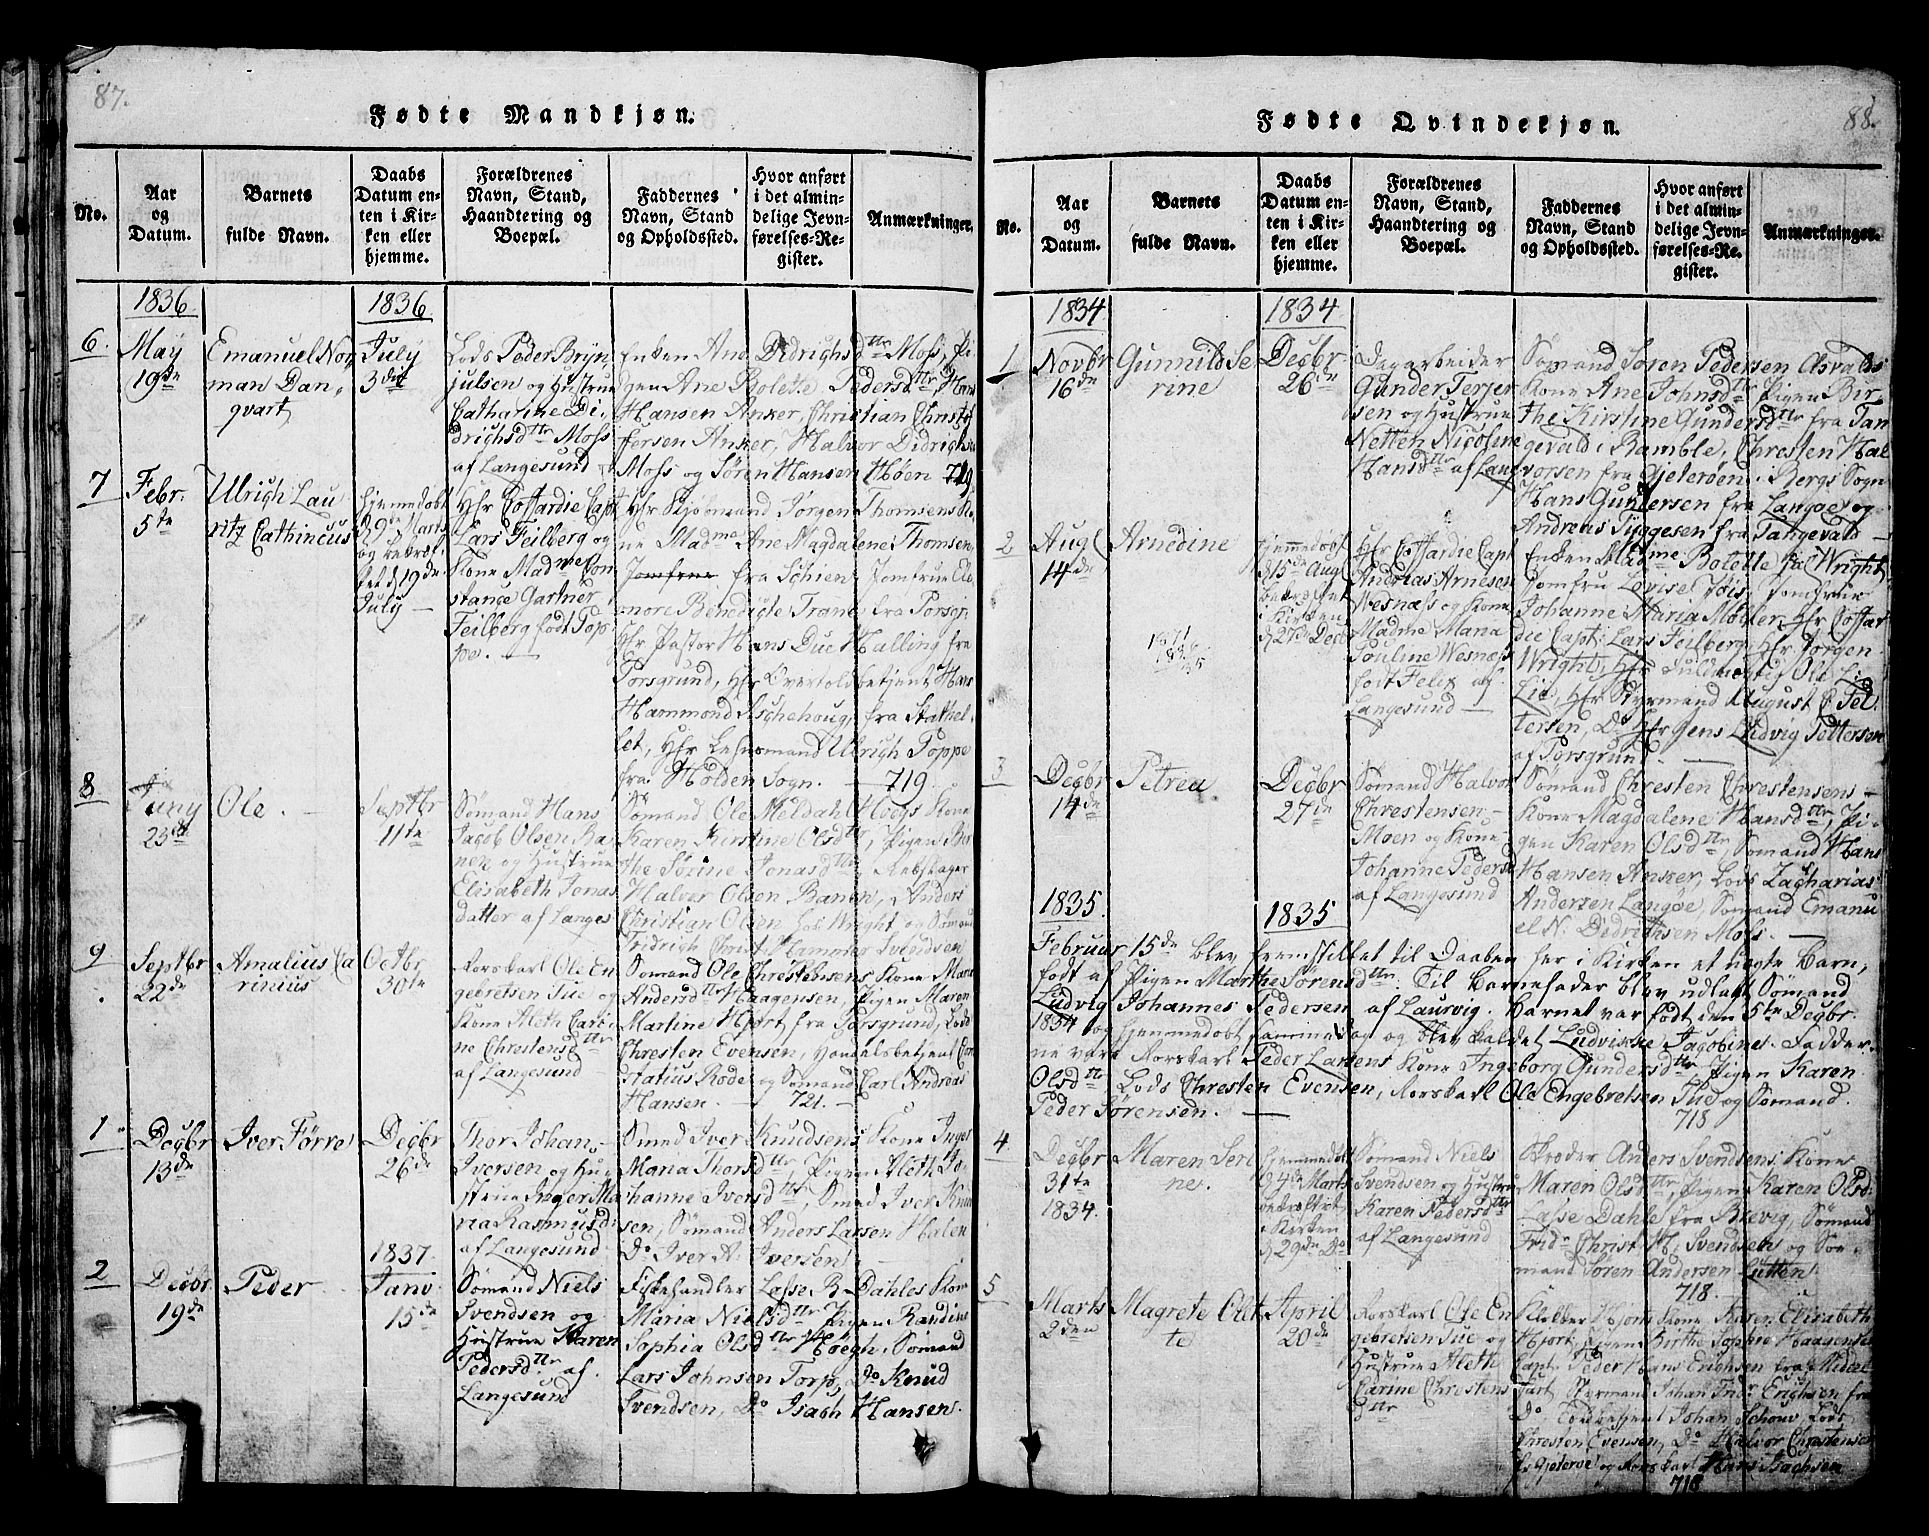 87.
Fødte Mandkjøn.
No.
Aar og Datum.
Barnets fulde Navn.
Daabs Datum enten i Kirken eller hjemme.
Forældrenes Navn, Stand, Haandtering og Boepæl.
Faddernes Navn, Stand og Opholdssted.
Hvor anført i det almindelige Jevnførelses-Register.
Anmærkninger.
1836
1836
6.
May
19de
Emanuel Nor
man Dan,
qvart
July
3die
Lods Peder Bryn
julsen og Hustrue
Catharine Di-
drichsdtr Moss
af Langesund
Enken Ane Didrighsdtr Moss, Pi
gen Ane Bolette Pedersdtr, Hans
Hansen Anker, Christian Christo
fersen Anker, Halvor Didrighsen
Moss og Søren Hansen Høen 719
7
Febr.
5te
Ulrigh Lau
ritz Cathincus
Hjemmedøbt
d 9de Marts
og bekræf-
tet d 19de
July
Hfr Coffardie Capt
Lars Feilberg og
Kone Madme Con
stance Gartner
Feilberg født Pop
pe.
Hfr Skibsmand Jørgen Thomsens Ko
ne Madme Ane Magdalene Thomsen,
Jomfrue fra Schien Jomfrue Ele
nore Benedigte Trane fra Porsgr
Hfr Pastor Hans Due Halling fra
Porsgrund, Hfr Overtoldbetjent Hans
Hammond Aschehoug, fra Stathel
let, Hfr Lehnsmand Ulrigh Poppe
fra Holden Sogn. 719
8
Juny
23de
Ole.
Septbr
11te
Sømand Hans
Jacob Olsen Ba
nen og Hustrue
Elisabeth Jonas
datter af Langes
Sømand Ole Meldahl Høegs Kone
Karen Kirstine Olsdtr, Pigen Ber
the Sørine Jonasdtr, Rebslager
Halvor Olsen Banen, Anders
Christian Olsen hos Wright, og Søman
Fridrigh Christ Hammer Svendsen
9
Septbr
22de
Amalius Ca
rinius
Octbr
30te
Rorskarl Ole En
gebretsen Tue og
Kone Aleth Cari
ne Chrestensdtr
af Langesund
Sømand Ole Chrestensens Kone Maria
Andersdtr Haagensen, Pigen Maren
Martine Hjort fra Porsgrund, Lods
Chresten Evensen, Handelsbetjent Con
statius Rode og Sømand Carl Andreas
Hansen. 721.
1
Decbr
13de
Iver Førre
Decbr
26de
Thor Johan
Iversen og Hu
strue Inger Ma
ria Rasmusd:
af Langesund
Smed Iver Knudsens Kone Inger
Maria Thorsdtr, Pigen Aleth Jo
hanne Iversdtr, Smed Iver Knud
sen, Sømand Anders Larsen Halen
Do Iver A. Iversen
1837.
2
Decbr
19de
Peder
Janv
15de
Sømand Niels
Svendsen og
Hustrue Karen
Pedersdtr af
Langesund
Fiskehandler Lasse B. Dahles Kone
Maria Nielsdtr Pigen Randine
Sophia Olsdtr Høegh, Sømand
Lars Johnsen Torp, Do Knud
Svendsen, Do Isach Hansen.
88.
Fødte Qvindekjøn.
No.
Aar og Datum.
Barnets fulde Navn.
Daabs Datum enten i Kirken eller hjemme.
Forældrenes Navn, Stand, Haandtering og Boepæl.
Faddernes Navn, Stand og Opholdssted.
Hvor anført i det almindelige Jevnførelses-Register.
Anmærkninger.
1834
1834
1
Novbr
16de
Gunnild Se
rine
Decbr
26de
Dagarbeider
Gunder Terjer
sen og Hustrue
Netten Nicoline
Hansdtr af Lang
Sømand Søren Pedersen Asvalds
Kone Ane Johnsdtr Pigen Bir
the Kirstine Gundersdtr fra Tan
gevald i Bamble, Chresten Hal
vorsen fra Gjeterøen i Bergs Sogn
Hans Gundersen fra Langøe og
Andreas Tyggesen fra Tangevald
2
Aug
14de
Arnedine
Hjemmedøbt
d 15de Aug
bekræftet
i Kirken
d 27de Dec
Hfr Coffardie Capt
Andrias Arnesen
Wesnæss og Kone
Madme Maria
Pouline Wesnæss
født Felix af
Langesund
Enken Madme Bolette Wright
Jomfru Lovise Tøis, Jomfrue
Johanne Maria Møller, Hfr Coffar
die Capt: Lars Feilberg, Hfr Jorgen
Wright, Hfr Fuldmægtig Ole
Lie, Hfr Styrmand August C. Pet
tersen, Do Hfr Jens Ludvig Pettersen
af Porsgrund.
3
Decbr
14de
Petrea
Decbr
27de
Sømand Halvor
Chrestensen
Moen og Kone
Johanne Pedersd
af Langesund
Sømand Chresten Chrestensens
Kone Magdalene Hansdtr, Pi-
gen Karen Olsdtr, Sømand Hans
Hansen Anker, Lods Zacharias
Andersen Langøe, Sømand Emanu
el N: Dedrichsen Moss.
1835.
1835
Februar 15de blev fremstillet til Daaben her i Kirken et uægte Barn,
født af Pigen Marthe Sørensdtr. Til Barnefader blev udlagt Sømand
Ludvig Johannes Pedersen af Laurvig. Barnet var født den 5te Decbr.
1834 og hjemmedøbt samme Dag og blev kaldet Ludvikke Jacobine. Fadder-
ne vare Rorskarl Peder Larsens Kone Ingeborg Gundersdtr, Pigen Karen
Olsdtr Lods Chresten Evensen, Rorskarl Ole Engebretsen Tue og Sømand
Peder Sørensen.
718
4
Decbr
31te
1834.
Maren Seri
ne.
Hjemmedøbt
d 4de Marts
bekræftet
i Kirken
d 29de Do
Sømand Niels
Svendsen og Hustrue
Karen Pedersdtr
af Langesund
Skrøder Anders Svendsens Kone
Maren Olsdtr, Pigen Karen Olsd:
Lasse Dahle fra Brevig, Sømand
Fride Christ H. Svendsen og Søe
mand Søren Andersen Lutten
718.
5
Marts
2den
Magrete Olet
te
April
20de
Rorskarl Ole En
gebretsen Tue og
Hustrue Aleth
Carine Chrestens
dtr
Klokker Hjorts Kone Karen Elisabeth
Hjort, Pigen Birthe Sophie Haagensen
Capt. Peder Hans Erichsen fra Eidan
Styrmand Johan Fridr Erichsen fra
Do, Toldbetjent Johan Schouv, Lods
Chresten Evensen, Do Halvor Chrestensen
fr Gjeterøe og Rorskarl Hans Isachsen
718